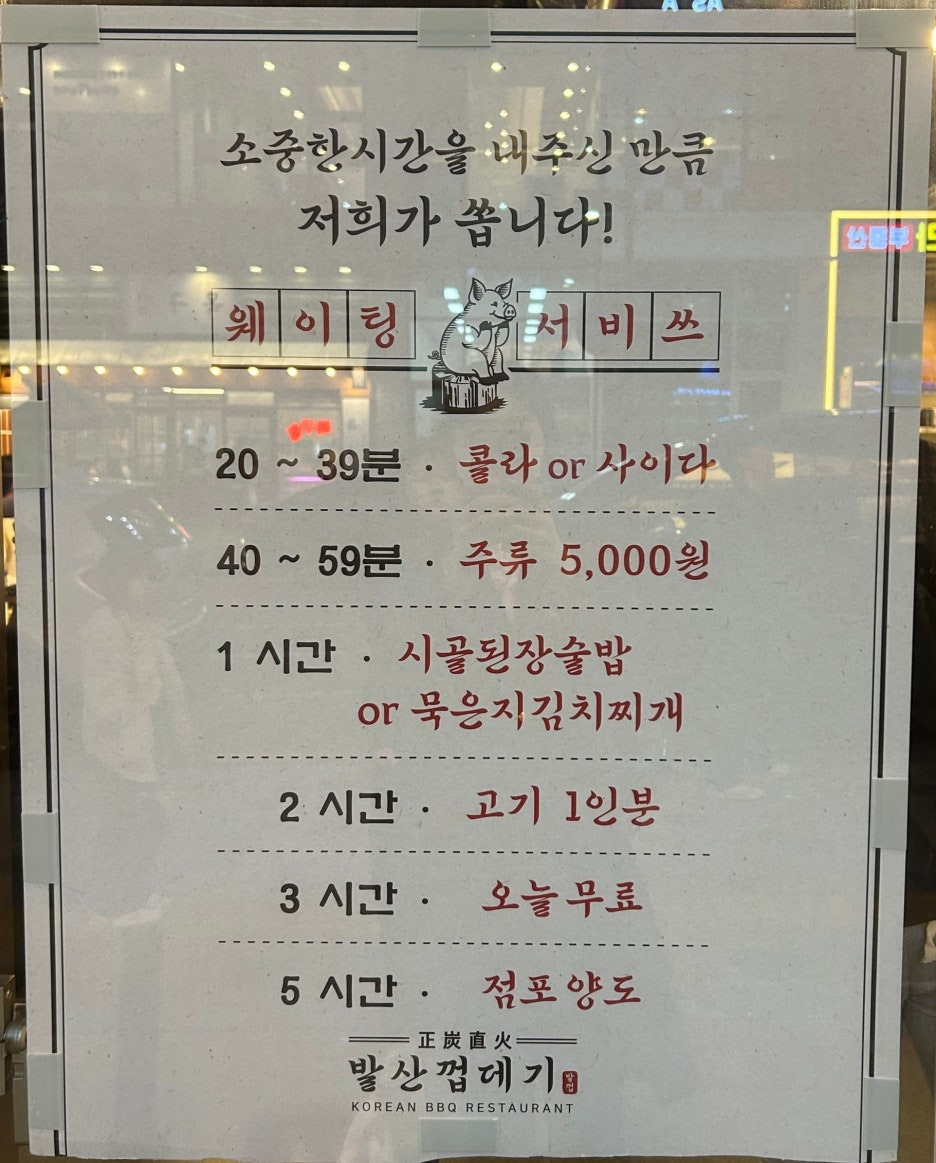 소중한시간을 내주신 만큼
저희가 쏩니다!
웨이팅 서비쓰
20 ~ 39분 · 콜라 or 사이다
40 ~ 59분 · 주류 5,000원
1 시간 · 시골된장술밥
or 묵은지김치찌개
2 시간 · 고기 1인분
3 시간 · 오늘무료
5 시간 · 점포양도
正炭直火
발산껍데기 발껍
KOREAN BBQ RESTAURANT